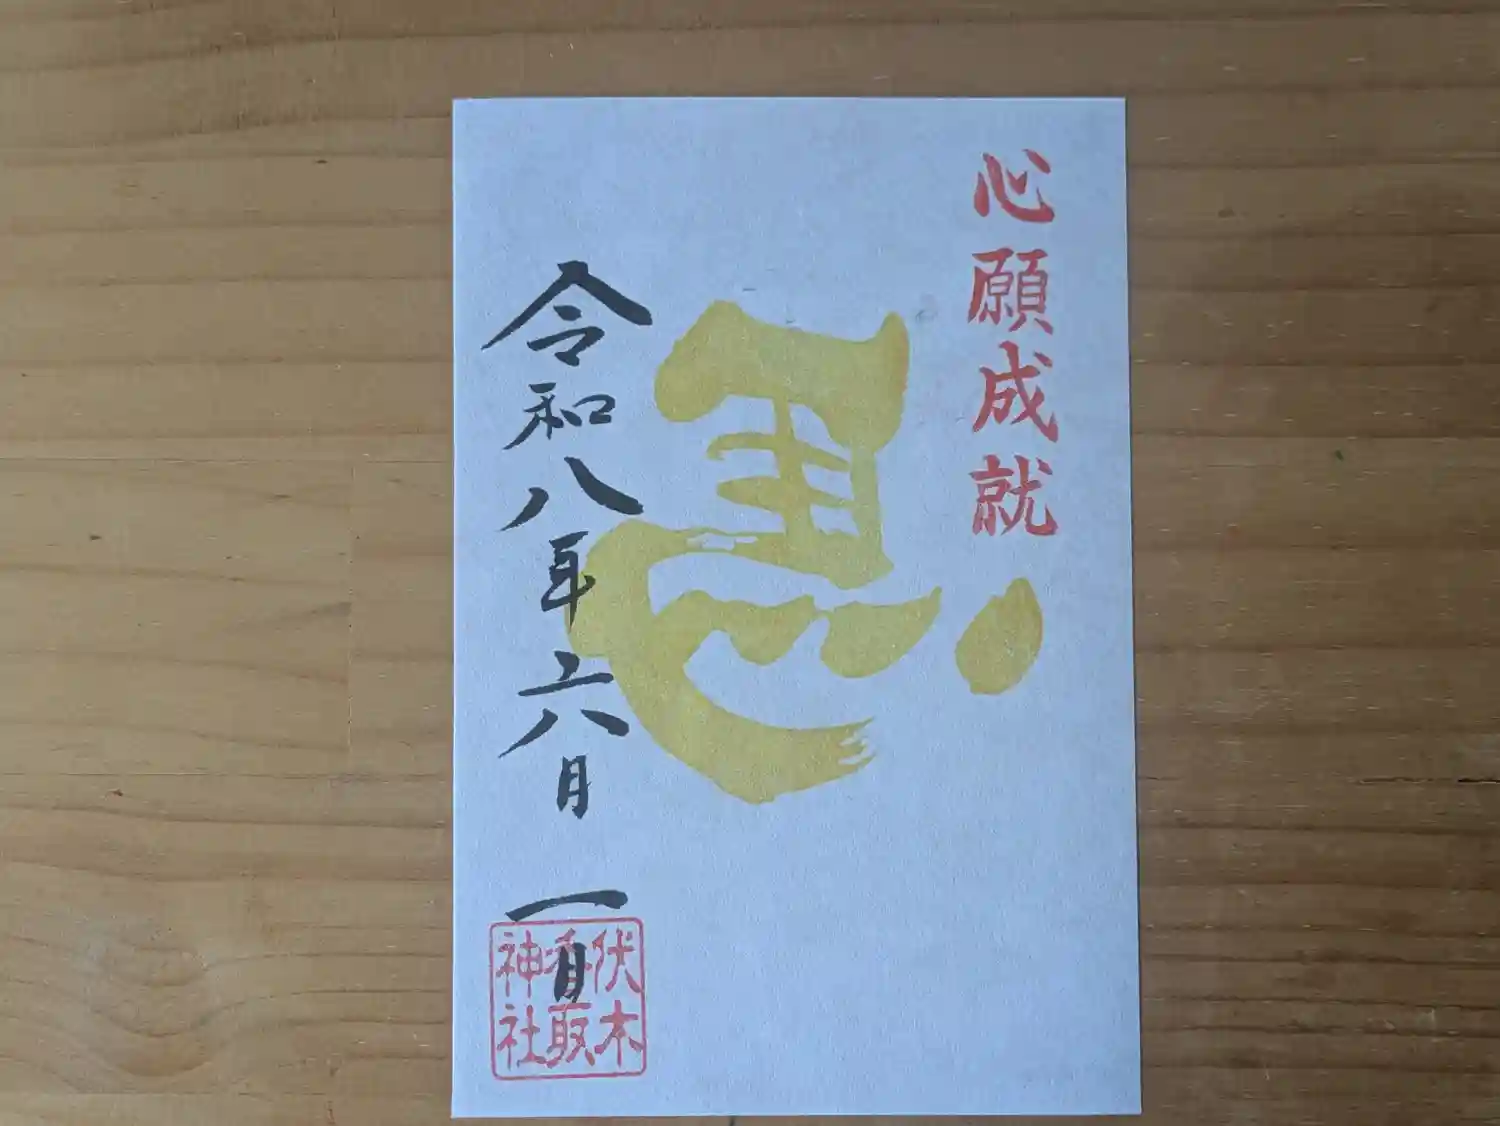 心願成就
令和八年六月一日
伏木
香取
神社